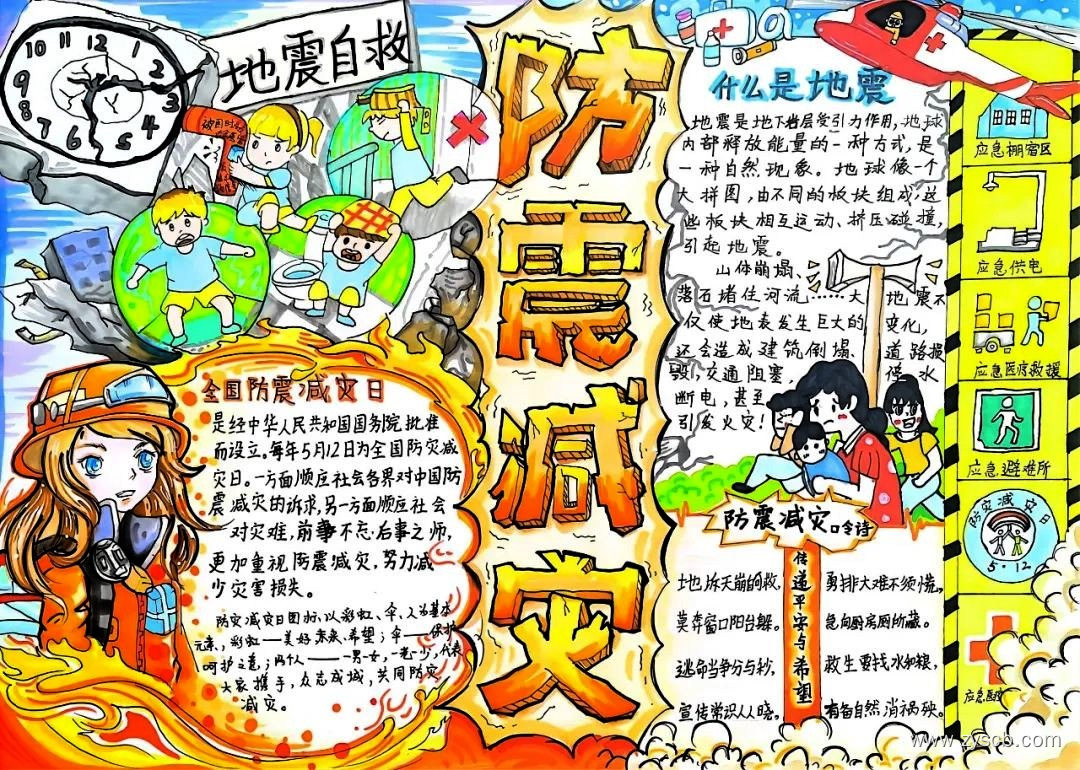 10 11 12
9 2
8 3
7 4
6 5
地震自救
被困时
防震减灾
全国防震减灾日
是经中华人民共和国国务院批准
而设立。每年5月12日为全国防灾减
灾日。一方面顺应社会各界对中国防
震减灾的诉求,另一方面顺应社会
对灾难,前事不忘,后事之师,
更加重视防震减灾,努力减
少灾害损失。
防灾减灾日图标,以彩虹、伞、人为基本
元素,彩虹——美好未来、希望;伞——保护
呵护之意;两个人——一男一女,一老一少,代表
大家携手,众志成城,共同防灾
减灾。
什么是地震
地震是地下岩层受引力作用,地球
内部释放能量的一种方式,是
一种自然现象。地球像一个
大拼图,由不同的板块组成,这
些板块相互运动、挤压碰撞,
引起地震。
山体崩塌、
落石堵住河流……大地震不
仅使地表发生巨大的变化,
还会造成建筑倒塌、道路损
毁,交通阻塞,停水
断电,甚至
引发火灾!
防震减灾口令诗
传递平安与希望
地冻天崩的救, 勇排大难不须慌。
莫奔窗口阳台躲。 急向厨房厕所藏。
逃命当争分与秒, 救生要找水和粮,
宣传常识人人晓。 有备自然消祸殃。
应急棚宿区
应急供电
应急医疗救援
应急避难所
防灾减灾日
5·12
应急医
www.zyscb.com